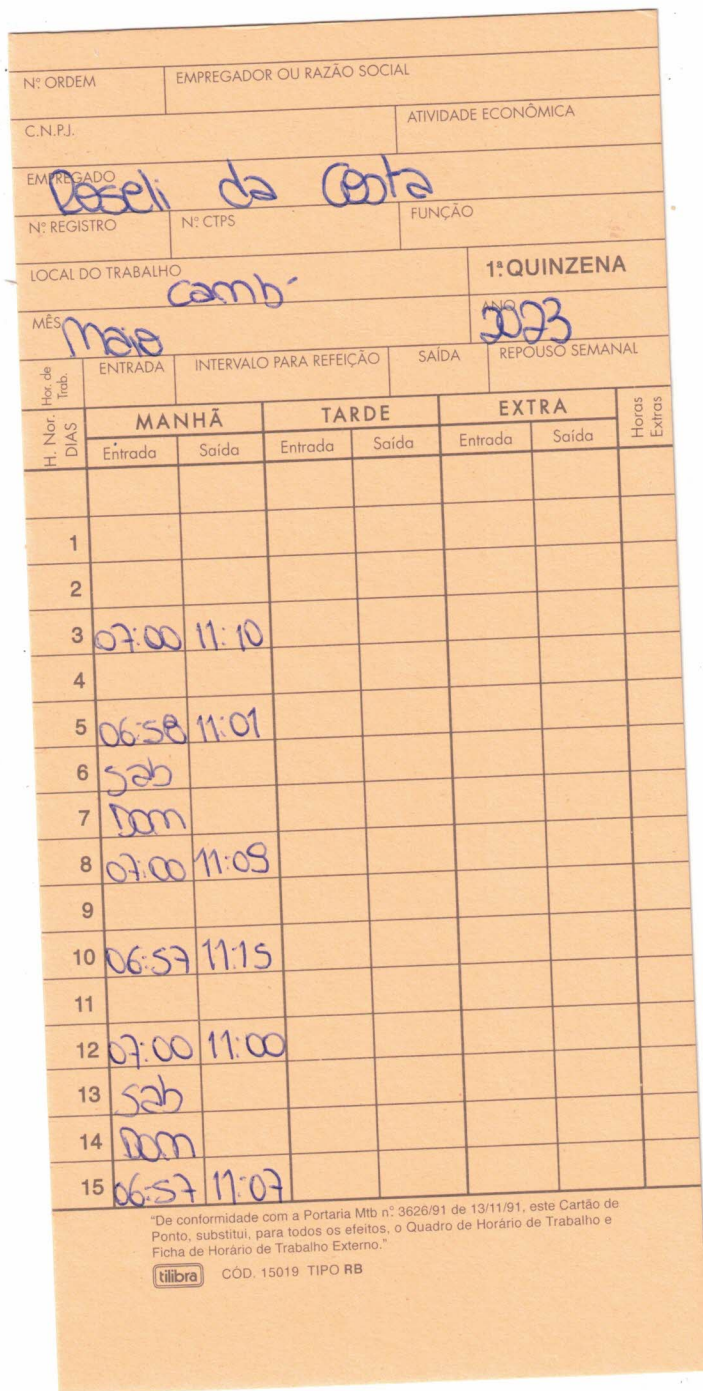 Nº ORDEM EMPREGADOR OU RAZÃO SOCIAL
C.N.P.J. ATIVIDADE ECONÔMICA
EMPREGADO Roseli da Costa
Nº REGISTRO Nº CTPS FUNÇÃO
LOCAL DO TRABALHO Cambí 1ª QUINZENA
MÊS Maio ANO 2023
Hor. de Trab. ENTRADA INTERVALO PARA REFEIÇÃO SAÍDA REPOUSO SEMANAL
H. Nor. DIAS MANHÃ TARDE EXTRA Horas Extras
Entrada Saída Entrada Saída Entrada Saída
1
2
3 07:00 11:10
4
5 06:58 11:01
6 Sab
7 Dom
8 07:00 11:09
9
10 06:57 11:15
11
12 07:00 11:00
13 Sab
14 Dom
15 06:57 11:07
"De conformidade com a Portaria Mtb nº 3626/91 de 13/11/91, este Cartão de
Ponto, substitui, para todos os efeitos, o Quadro de Horário de Trabalho e
Ficha de Horário de Trabalho Externo."
tilibra CÓD. 15019 TIPO RB